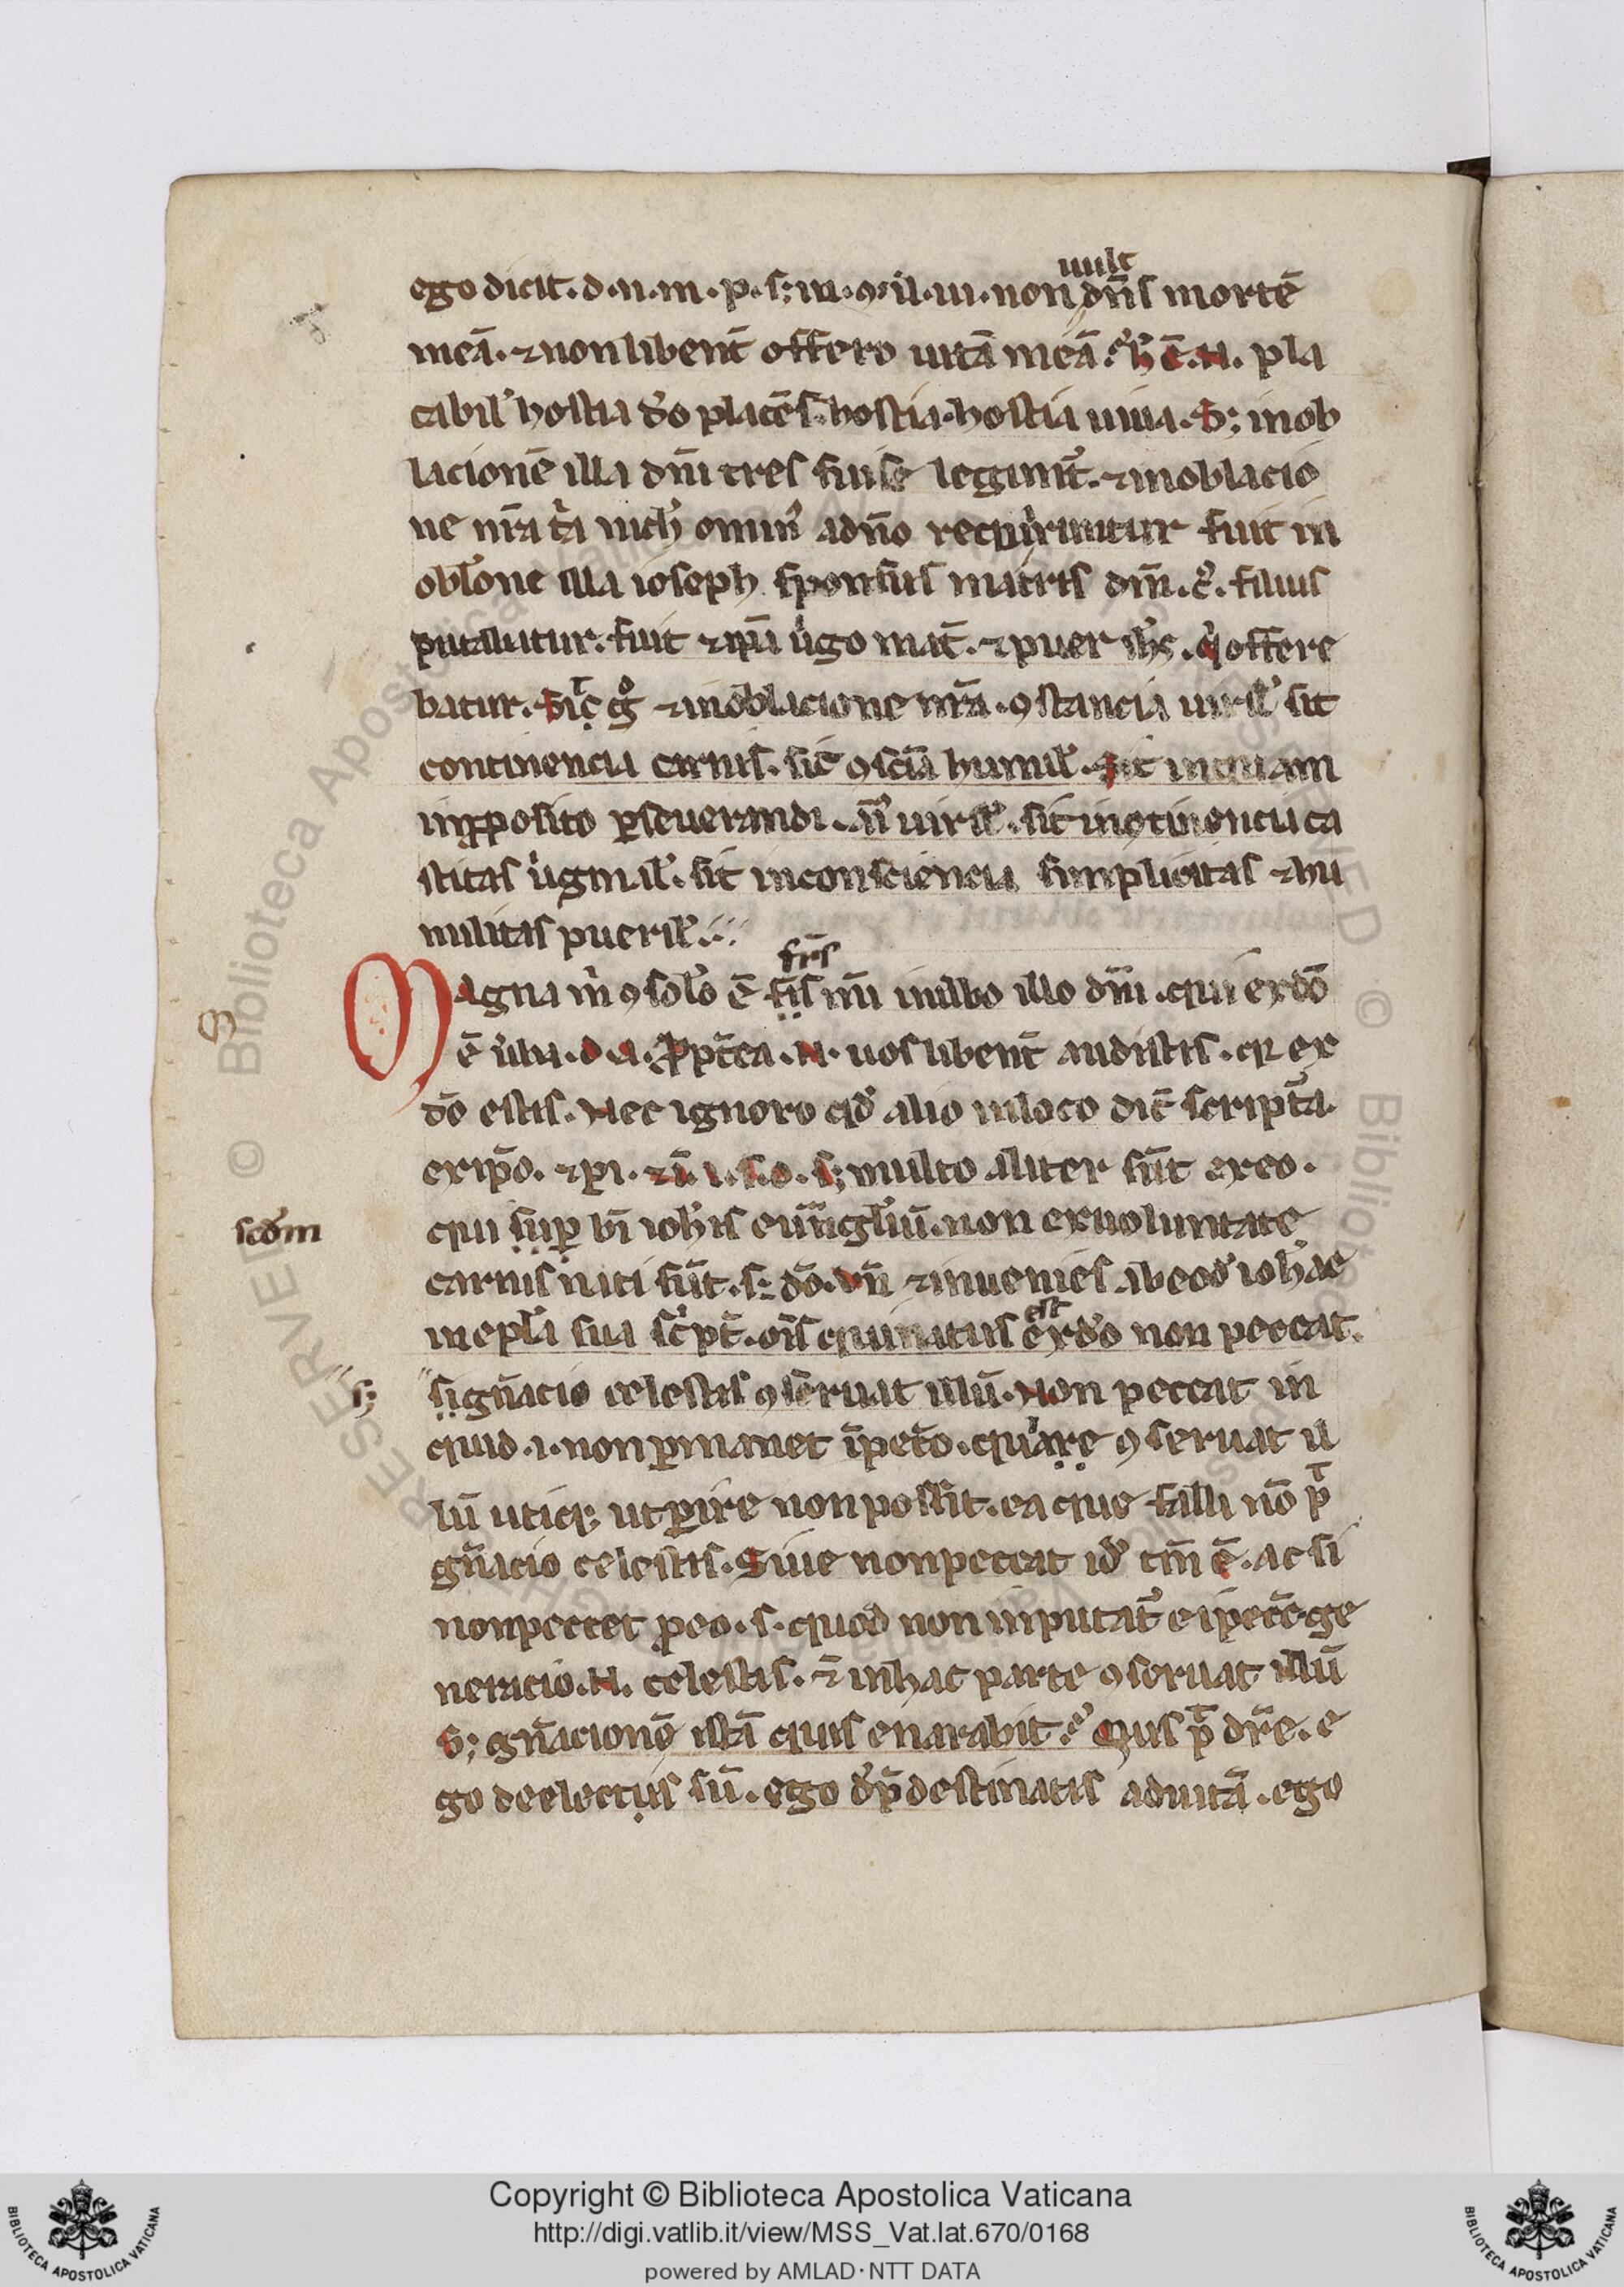 uult
ego dicit. d. n. m. p. s; m. ꝯ il. ui. non dn̄s mortē
meā. ⁊ non libent̄ offero uitā meā. h̄ ē. N. pla
cabil' hostia d'o placēs. hostia. hostia uiua. S; in ob
lacionē illa dn̄i tres fuise legunt'. ⁊ in oblacio
ne nr̄a t'a nich' omin' a dn̄o requiruntur fuit in
obl'one illa ioseph sponsus matris dn̄i. c'. filius
putabatur. fuit ⁊ ip̄a u'go mat̄. ⁊ puer ih's. q' offere
batur. Sic g° ⁊ in oblacione nr̄a. ꝯstancia uiril' sit
continencia carnis. sit ꝯsciā humil'. Sit inquam
in ꝓposito ꝑseuerandi. an' uiril'. sit in ꝯtinencia ca
stitas u'ginil'. sit in consciencia simplicitas ⁊ hu
militas pueril'.
frs̄
Magna m' ꝯsol'o ē fil's mi in illo dn̄i. qui ex dō
ē u'ba. d. a. Propt̄ea. N. uos libent̄ audistis. qꝛ ex
dō estis. Nec ignoro qd' alio in loco dic̄ scriptā.
ex ip̄o. ⁊ ꝑ i. ⁊ ī. i. s. o. s; multo aliter sūt ex eo.
scd'm
qui suꝑ bī ioh'is euūgl'iū. non ex uoluntate
carnis nati sūt. s; dō. Vn̄ ⁊ inuenies ab eod' ioh'ne
est
in epl'a sua sc'pt̄. oīs qui natus ex d'o non peccat.
s;
sign̄acio celestis ꝯs'eruat illū. Non peccat in
quid. i. non ꝑmanet ī pct̄o. quare ꝯseruat il
lū utiqꝫ ut ꝑire non possit. ea que falli nō p
gn̄acio celestis. Siue non peccat id' tm̄ ē. ac si
non peccet ꝓ eo. s. quod non inputat' ei pccē. ge
neracio. N. celestis. ⁊ in hac parte ꝯseruat illū
S; gn̄acionē istā quis enarabit. Quis p̄ dr̄e. e
go de electis sū. ego d' p̄destinatis ad uitā. ego
Copyright © Biblioteca Apostolica Vaticana
http://digi.vatlib.it/view/MSS_Vat.lat.670/0168
powered by AMLAD·NTT DATA
BIBLIOTECA APOSTOLICA VATICANA
BIBLIOTECA APOSTOLICA VATICANA